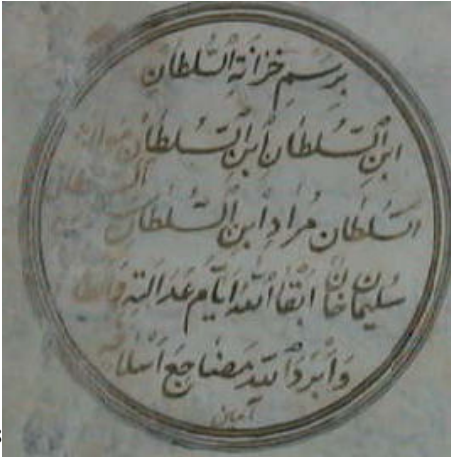 بِرَسْمِ خِزَانَةِ السُّلْطَانِ
ابْنِ السُّلْطَان ابْنِ السُّلْطَانِ
السُّلْطَان مُرَاد ابْنِ السُّلْطَان
سُلَيْمَان خَان ابْقَا اللهُ ايَّامَ عَدَالَتِهِ
وَابْرَدَ اللهُ مَضَاجِعَ اسْلَافِهِ
آمين